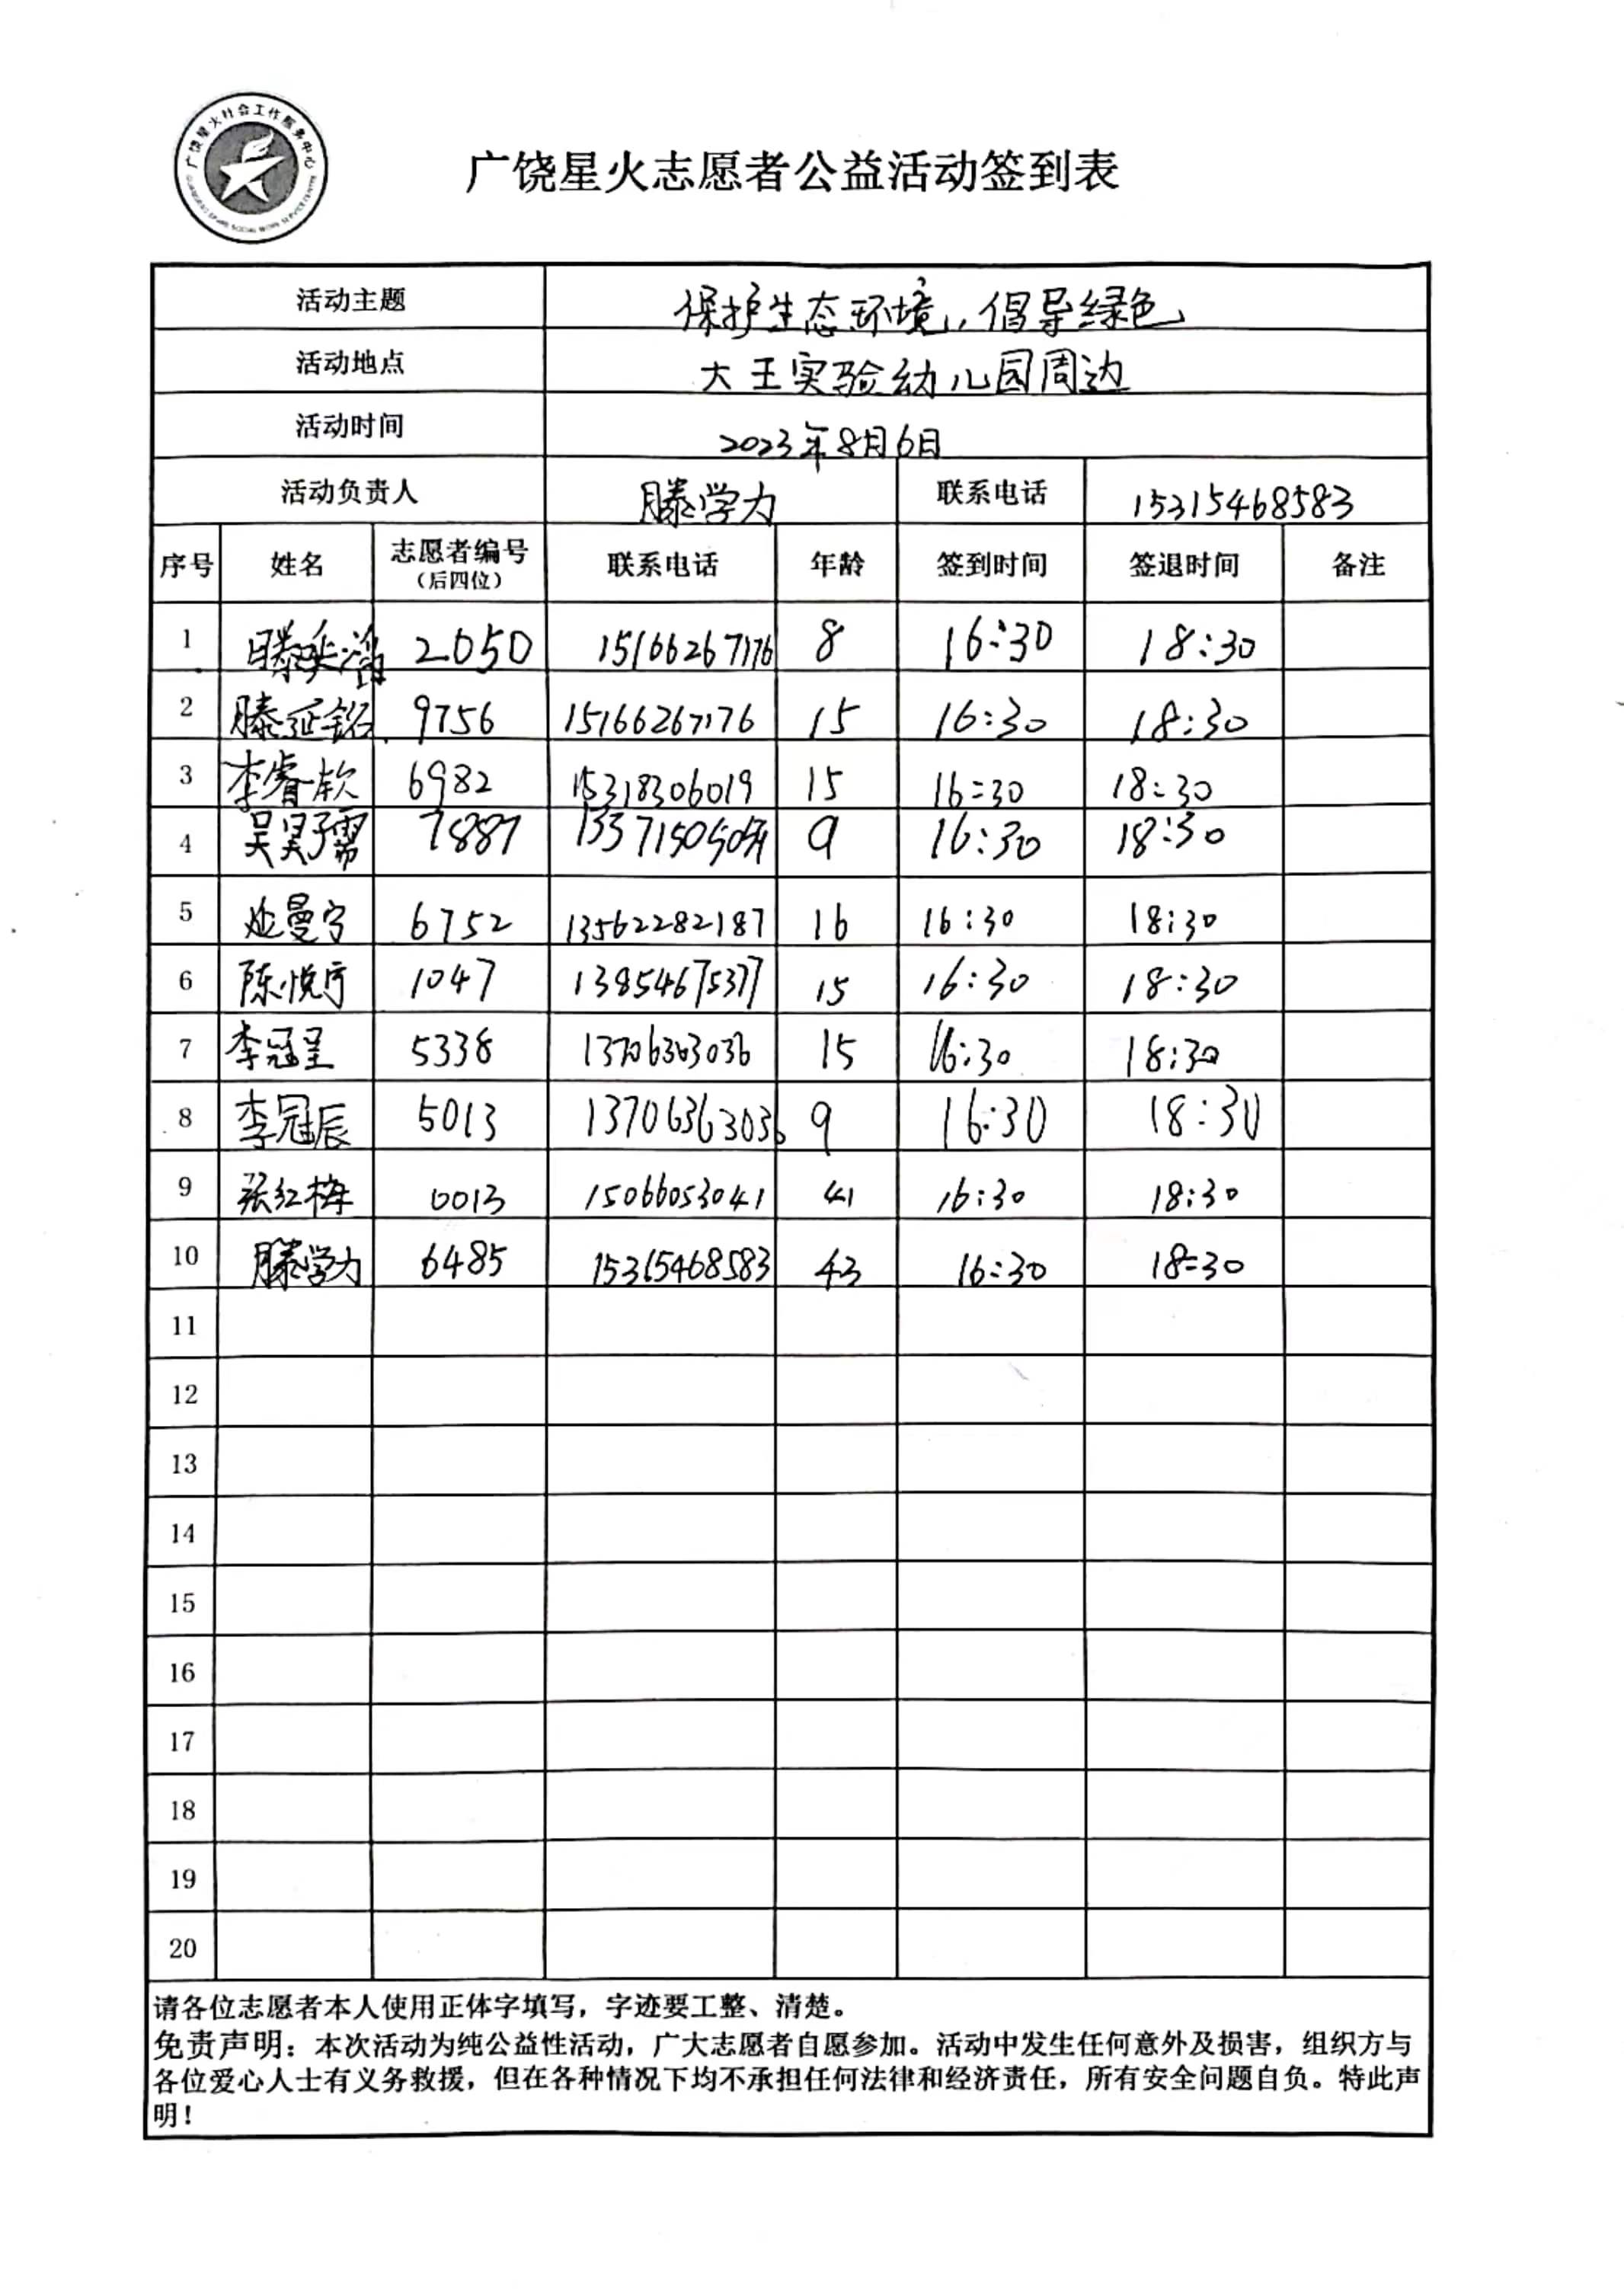 广饶星火社会工作服务中心
广饶星火志愿者公益活动签到表
活动主题 保护生态环境，倡导绿色
活动地点 大王实验幼儿园周边
活动时间 2023年8月6日
活动负责人 滕学力 联系电话 15315468583
序号 姓名 志愿者编号（后四位） 联系电话 年龄 签到时间 签退时间 备注
1 滕 2050 15166267176 8 16:30 18:30
2 滕延铭 9756 15166267176 15 16:30 18:30
3 李睿钦 6982 15318306019 15 16:30 18:30
4 吴昊霖 7887 9 16:30 18:30
5 曼宁 6752 13562282187 16 16:30 18:30
6 陈悦宁 1047 13854675377 15 16:30 18:30
7 李冠呈 5338 13706363036 15 16:30 18:30
8 李冠辰 5013 13706363036 9 16:30 18:30
9 张红梅 0013 15066053041 41 16:30 18:30
10 滕学力 6485 15315468583 43 16:30 18:30
11
12
13
14
15
16
17
18
19
20
请各位志愿者本人使用正体字填写，字迹要工整、清楚。
免责声明：本次活动为纯公益性活动，广大志愿者自愿参加。活动中发生任何意外及损害，组织方与
各位爱心人士有义务救援，但在各种情况下均不承担任何法律和经济责任，所有安全问题自负。特此声
明！